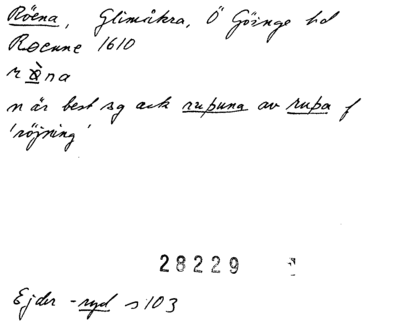 Röena, Glimåkra, Ö Göinge hd
Roenne 1610
n är best sg ack rupuna av rupa f
'röjning'
28229
Ejder -ryd s 103